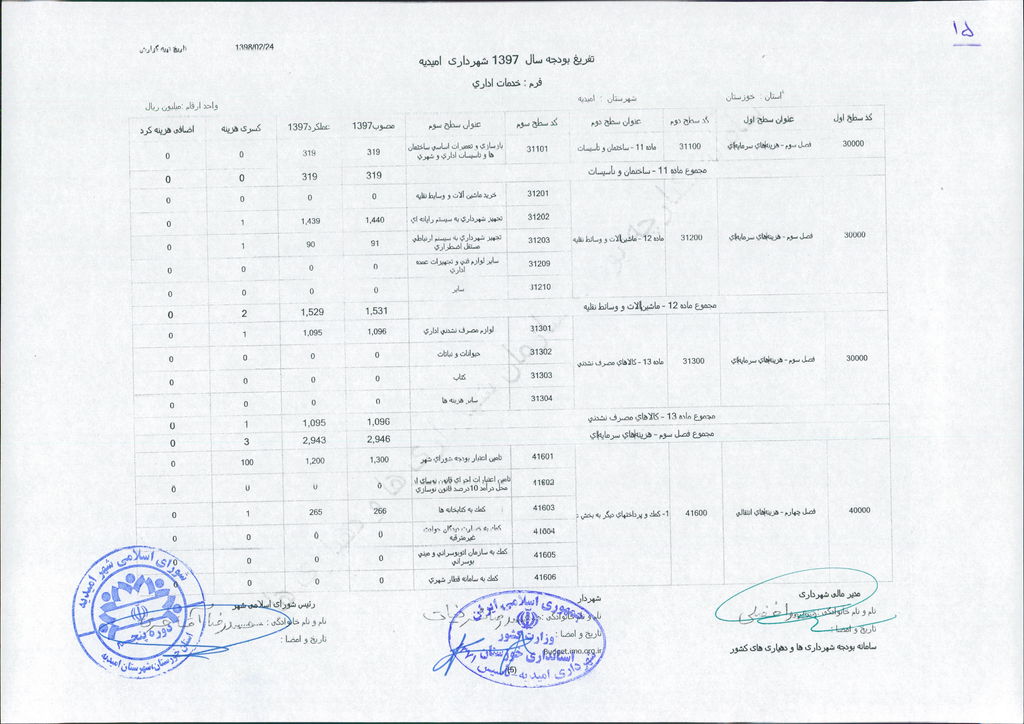 ۱۵
تاریخ تهیه گزارش 1398/02/24
تفریغ بودجه سال 1397 شهرداری امیدیه
فرم : خدمات اداری
استان : خوزستان شهرستان : امیدیه
واحد ارقام :میلیون ریال
کد سطح اول عنوان سطح اول کد سطح دوم عنوان سطح دوم کد سطح سوم عنوان سطح سوم مصوب1397 عملکرد1397 کسری هزینه اضافی هزینه کرد
30000 فصل سوم - هزینه‌های سرمایه‌ای 31100 ماده 11 - ساختمان و تأسیسات 31101 بازسازی و تعمیرات اساسی ساختمان ها و تاسیسات اداری و شهری 319 319 0 0
مجموع ماده 11 - ساختمان و تأسیسات 319 319 0 0
30000 فصل سوم - هزینه‌های سرمایه‌ای 31200 ماده 12 - ماشین‌آلات و وسائط نقلیه
31201 خرید ماشین آلات و وسایط نقلیه 0 0 0 0
31202 تجهیز شهرداری به سیستم رایانه ای 1,440 1,439 1 0
31203 تجهیز شهرداری به سیستم ارتباطی مستقل اضطراری 91 90 1 0
31209 سایر لوازم فنی و تجهیزات عمده اداری 0 0 0 0
31210 سایر 0 0 0 0
مجموع ماده 12 - ماشین‌آلات و وسائط نقلیه 1,531 1,529 2 0
30000 فصل سوم - هزینه‌های سرمایه‌ای 31300 ماده 13 - کالاهای مصرف نشدنی
31301 لوازم مصرف نشدنی اداری 1,096 1,095 1 0
31302 حیوانات و نباتات 0 0 0 0
31303 کتاب 0 0 0 0
31304 سایر هزینه ها 0 0 0 0
مجموع ماده 13 - کالاهای مصرف نشدنی 1,096 1,095 1 0
مجموع فصل سوم - هزینه‌های سرمایه‌ای 2,946 2,943 3 0
40000 فصل چهارم - هزینه‌های انتقالی 41600 1- کمک و پرداختهای دیگر به بخش
41601 تامین اعتبار بودجه شورای شهر 1,300 1,200 100 0
41602 تامین اعتبارات اجرای قانون نوسازی محل درآمد 10درصد قانون نوسازی 0 0 0 0
41603 کمک به کتابخانه ها 266 265 1 0
41604 کمک به خسارت دیدگان حوادث غیرمترقبه 0 0 0 0
41605 کمک به سازمان اتوبوسرانی و مینی بوسرانی 0 0 0 0
41606 کمک به سامانه قطار شهری 0 0 0 0
مدیر مالی شهرداری
نام و نام خانوادگی :
تاریخ و امضا :
سامانه بودجه شهرداری ها و دهیاری های کشور
شهردار
نام و نام خانوادگی :
تاریخ و امضا :
Budget.imo.org.ir
(5)
رئیس شورای اسلامی شهر
نام و نام خانوادگی :
تاریخ و امضا :
شورای اسلامی شهر امیدیه
دوره پنجم
استان خوزستان،شهرستان امیدیه
جمهوری اسلامی ایران
وزارت کشور
استانداری خوزستان
شهرداری امیدیه تاسیس